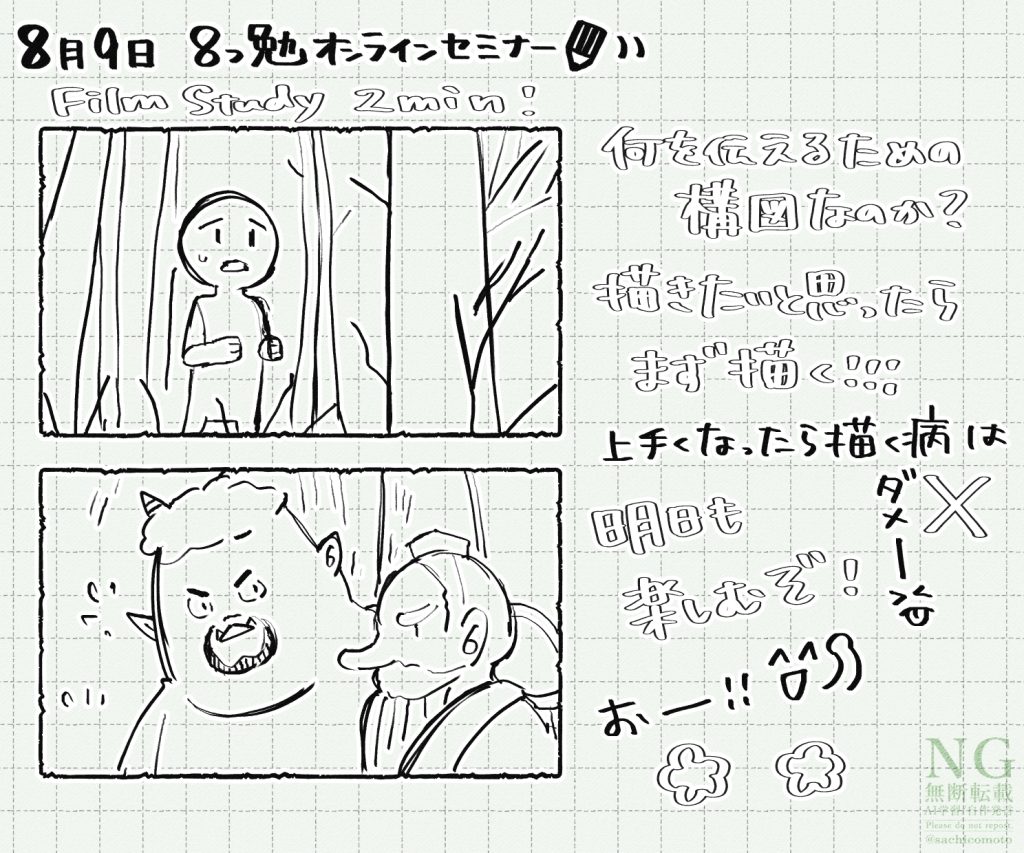 8月9日 8っ勉オンラインセミナー
Film Study 2min!
何を伝えるための
構図なのか?
描きたいと思ったら
まず描く!!!
上手くなったら描く病は
ダメー
明日も
楽しむぞ!
おー!!
NG
無断転載
AI学習/自作発言
Please do not repost.
@sachicomoto